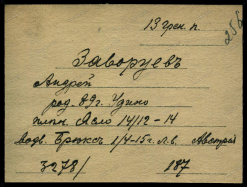 13 грен. п.
258
Заворуевъ
Андрей
род. 89 г. Удино
плѣн. Ясло 14/12-14
водв. Брюксъ 1/4-15 г. л.в. Австрей
3278/ 187